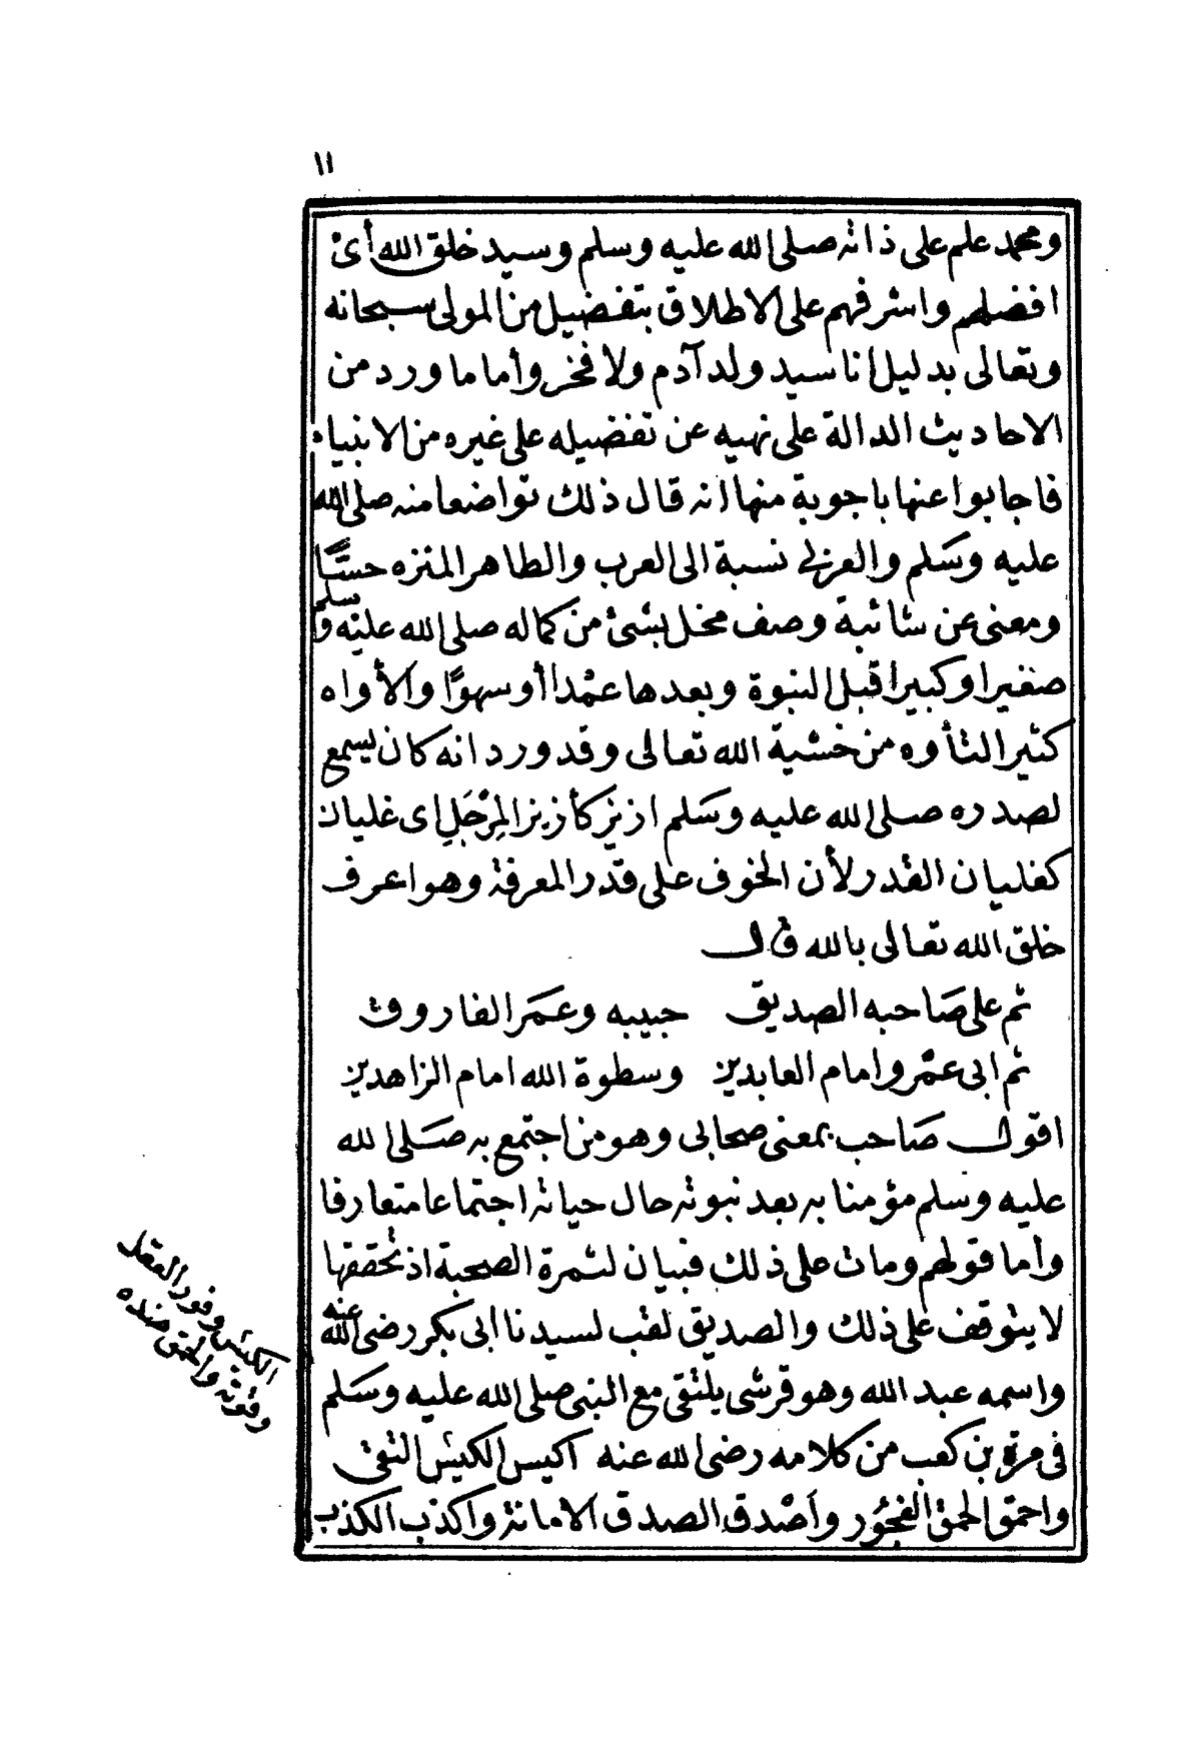 ١١
ومحمد علم على ذاته صلى الله عليه وسلم وسيد خلق الله أى
افضلهم واشرفهم على الاطلاق بتفضيل من المولى سبحانه
وتعالى بدليل انا سيد ولد آدم ولا فخر وأما ما ورد من
الاحاديث الدالة على نهيه عن تفضيله على غيره من الانبياء
فاجابوا عنها باجوبة منها انه قال ذلك تواضعا منه صلى الله
عليه وسلم والعربى نسبة الى العرب والطاهر المنزه حسًّا
ومعنى عن شائبة وصف مخل بشئ من كماله صلى الله عليه وسلم
صغيرا وكبيرا قبل النبوة وبعدها عمْدا أو سهوًا والأواه
كثير التأوه من خشية الله تعالى وقد ورد انه كان يسمع
لصدره صلى الله عليه وسلم ازيز كأزيز المِرْجَلِ اى غليان
كغليان القدر لأن الخوف على قدر المعرفة وهو اعرف
خلق الله تعالى بالله قال
ثم على صاحبه الصديق حبيبه وعمر الفاروق
ثم ابى عمْرو امام العابدين وسطوة الله امام الزاهدين
اقول صاحب بمعنى صحابى وهو من اجتمع به صلى الله
عليه وسلم مؤمنا به بعد نبوته حال حياته اجتماعا متعارفا
وأما قولهم ومات على ذلك فبيان لثمرة الصحبة اذ تحققها
لا يتوقف على ذلك والصديق لقب لسيدنا ابى بكر رضى الله عنه
واسمه عبد الله وهو قرشى يلتقى مع النبى صلى الله عليه وسلم
فى مرة بن كعب من كلامه رضى الله عنه اكيس الكيس التقى
واحمق الحمق الفجور واصْدق الصدق الامانة واكذب الكذب
الكيس وفور العقل
وقوته والحمق ضده